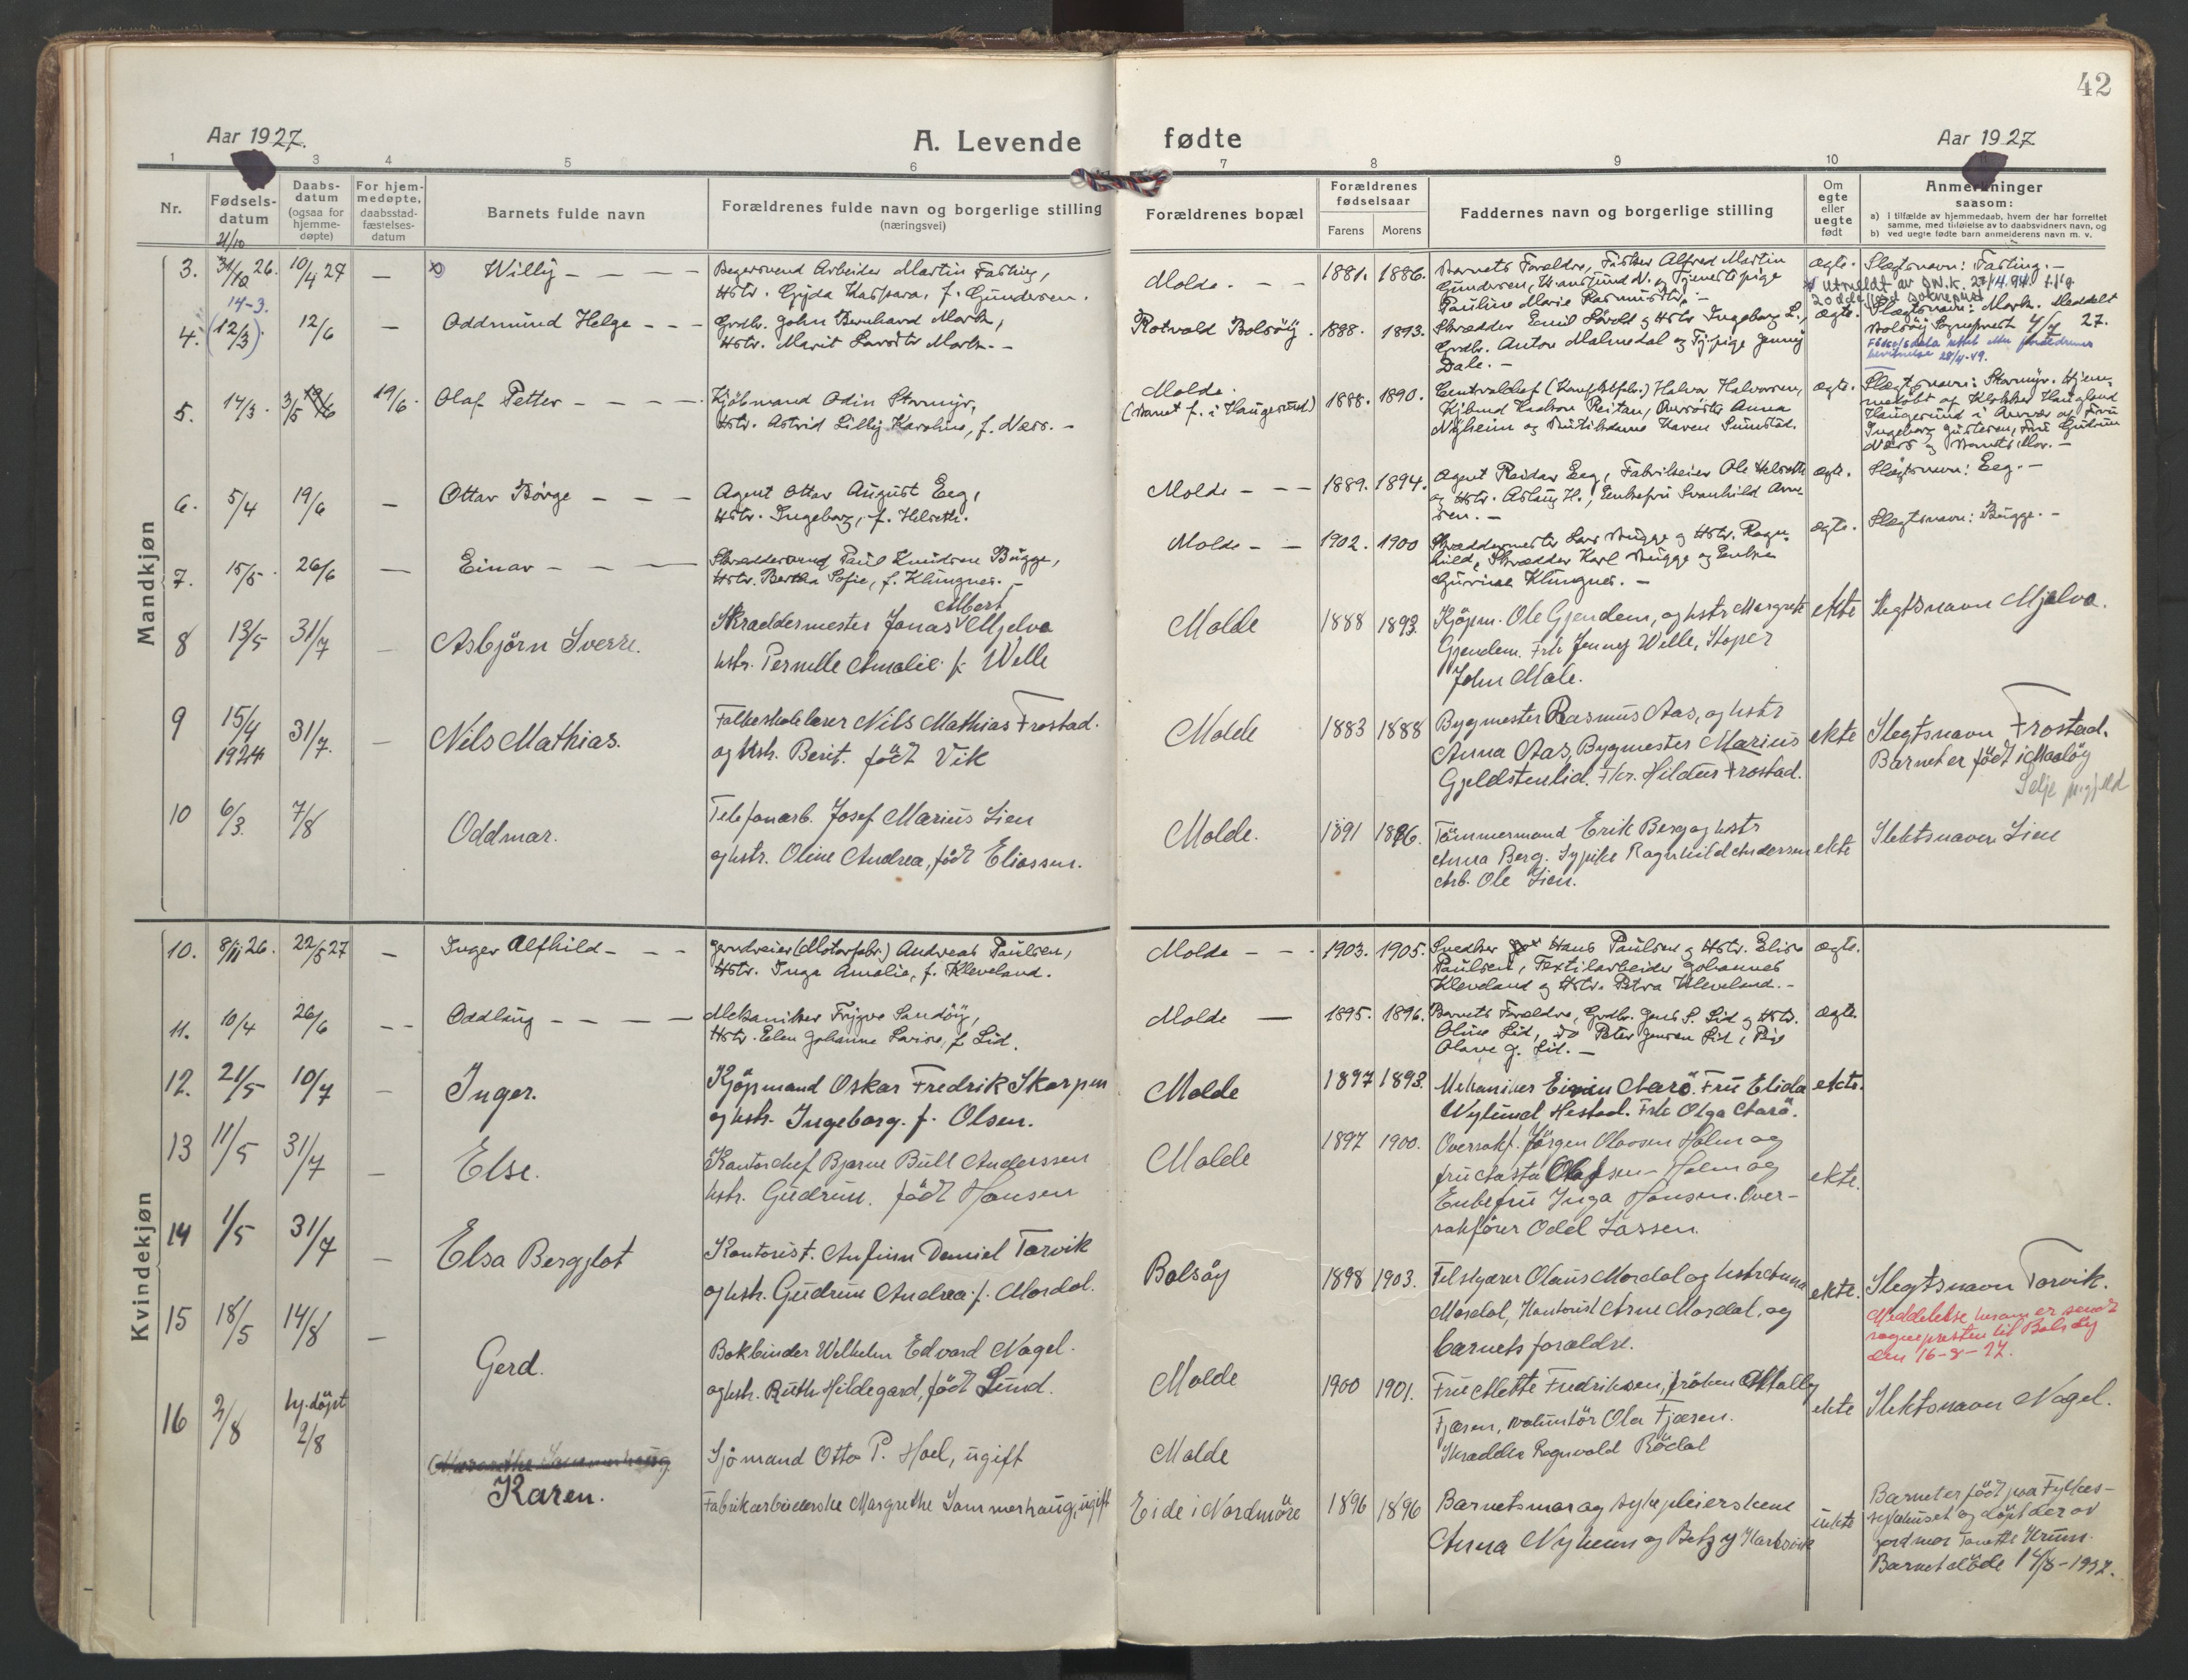 42
Aar 1927.
A. Levende fødte
Aar 1927
1 3 4 5 6 7 8 9 10
Nr.
Fødsels-
datum
Daabs-
datum
(ogsaa for
hjemme-
døpte)
For hjem-
medøpte,
daabsstad-
fæstelses-
datum
Barnets fulde navn
Forældrenes fulde navn og borgerlige stilling
(næringsvei)
Forældrenes bopæl
Forældrenes
fødselsaar
Farens Morens
Faddernes navn og borgerlige stilling
Om
egte
eller
uegte
født
Anmerkninger
saasom:
a) i tilfælde av hjemmedaab, hvem der har forrettet
samme, med tilføielse av to daabsvidners navn, og
b) ved uegte fødte barn anmelderens navn m. v.
Mandkjøn
3. 31/12 26. 21/10 10/4 27 — Willy — — — —
Arbeider Martin Fasting,
Hstr. Gyda Kaspara, f. Gundersen.
Molde. — —
1881. 1886.
Barnets Forældre, Fisker Alfred Martin
Gundersen, Kristiansund N. og Tjenestepige
Pauline Marie Rasmusdtr. —
ægte.
Slægtsnavn: Fasting. —
4. 14-3. (12/3) 12/6 — Oddmund Helge — — —
Grdbr. John Bernhard Mork,
Hstr. Marit Larsdtr Mork. —
Rotvold Bolsöy.
1888. 1893.
Skrædder Emil Løvold og Hstr Ingeborg L.,
Grdbr. Anton Malmedal og Tj.pige Jenny
Dale. —
ægte.
Slægtsnavn: Mork. Meddelt
Bolsöy Sogneprest 4/7 27.
Fødselsdata rettet etter foreldrenes
28/4-49.
5. 14/3. 3/5 19/6 19/6. Olaf Petter — — — —
Kjöbmand Odin Stormyr,
Hstr. Astrid Lilly Karoline, f. Næss. —
Molde.
(Barnet f. i Haugesund)
1888. 1890.
Halvor Halvorsen,
Kjbmd Haakon Reiten, Anna
Nyheim og Karen Sundstad.
ægte.
Slægtsnavn: Stormyr. Hjem-
medøbt af Klokker Haugland
Haugesund i Nærvær af Fru
Ingeborg Gustersen, Fru Gudrun
Næss og Barnets Mor. —
6. 5/4 19/6 — Ottar Börge — — —
Agent Ottar August Eeg,
Hstr. Ingeborg, f. Helseth.
Molde — — —
1889. 1894.
Agent Reidar Eeg, Fabrikeier Ole Helseth
og Hstr. Aslaug H., Enkefru Svanhild Arne-
sen. —
ægte.
Slægtsnavn: Eeg. —
7. 15/5. 26/6 — Einar — — — —
Skræddersvend Paul Knudsen Bugge,
Hstr. Bertha Sofie, f. Klungnes. —
Molde — —
1902. 1900
Skræddermester Lars Bugge og Hstr. Ragn-
hild, Skrædder Karl Bugge og Enken
Gurine Klungnes. —
ægte.
Slægtsnavn: Bugge. —
8 13/5 31/7 — Asbjörn Sverre.
Skræddermester Jonas Albert Mjelva
hstr. Pernille Amalie f. Welle
Molde
1888 1893.
Kjöpm. Ole Gjendem, og hstr Margrete
Gjendem. Frk Jenny Welle, Stoper
John Male.
ekte
Slegtsnavn Mjelva.
9 15/4 1924 31/7. — Nils Mathias.
Folkeskolelærer Nils Mathias Frostad.
og hstr. Berit. født Vik
Molde
1883 1888
Bygmester Rasmus Aas, og hstr
Anna Aas, Bygmester Marius
Gjeldstenlid. Fkr. Hildur Frostad.
ekte
Slegtsnavn Frostad.
Barnet er født i Maaløy
Selje p.gjeld
10 6/3. 7/8 Oddmar.
Telefonarb. Josef Marius Lien
og hstr. Oline Andrea, født Eliassen.
Molde.
1891 1896.
Tömmermand Erik Berg og hstr
Anna Berg. Sypike Ragnhild Andersen
Arb. Ole Lien.
ekte
Slektsnavn Lien
Kvindekjøn
10. 8/11 26. 22/5 27 — Inger Alfhild — — —
Andreas Paulsen,
Hstr. Inga Amalie, f. Kleveland.
Molde — — —
1903. 1905.
Snedker Hans Paulsen og Hstr. Elise
Paulsen, Textilarbeider Johannes
Kleveland og Hstr. Petra Kleveland. —
ægte.
11. 10/4 26/6 — — Oddlaug — — — —
Mekaniker Trygve Sandöy,
Hstr. Elen Johanne Lovise, f. Lid.
Molde —
1895. 1896.
Barnets Forældre, Grdbr. Jens S. Lid og Hstr.
Oline Lid, do Peter Jensen Lid, Pige
Olave J. Lid. —
ægte.
12. 21/5 10/7 — Inger.
Kjöpmand Oskar Fredrik Skorpen
og hstr. Ingeborg. f. Olsen.
Molde
1897 1893.
Mekaniker Aarö. Fru Elida
Nylund Hestad. Frk Olga Aarö.
ekte.
13 11/5 31/7 — Else.
Kontorchef Bjarne Bull Anderssen
hstr. Gudrun. født Hansen
Molde
1897 1900.
Overrakf. Jörgen Olafsen Holm og
fru Aasta Olafsen-Holm og
Enkefru Inga Hansen. Over-
rakförer Odd Lassen.
ekte.
14 1/5 31/7 — Elsa Bergglot
Kontorist. Anfinn Daniel Torvik
og hstr. Gudrun Andrea f. Mordal.
Bolsöy
1898 1903.
Filskjærer Olaus Mordal og hstr Anna
Mordal, Kontorist Arne Mordal, og
barnets forældre.
ekte.
Slegtsnavn Torvik.
Meddelelse herom er sendt
sognepresten til Bolsöy
den 16-8-27.
15 18/5 14/8 — Gerd.
Bokbinder Wilhelm Edvard Nagel.
og hstr. Ruth Hildegard, født Lund.
Molde
1900 1901.
Fru Mette Fredriksen, fröken Mally
Fjæren, volontör Ola Fjæren.
Skrædder Ragnvald Rödal
ekte
Slektsnavn Nagel.
16 2/8 hj.døpt 2/8
Karen.
Sjömand Otto P. Hoel, ugift
Fabrikarbeiderske Margrethe Sommerhaug, ugift
Molde
Eide i Nordmöre
1896 1896
Barnets mor og sykepleierskene
Anna Nyheim og Betzy
uekte
Barnet er født paa Fylkes-
sykehuset og døpt der av
jordmor
Barnet døde 14/8-1927.